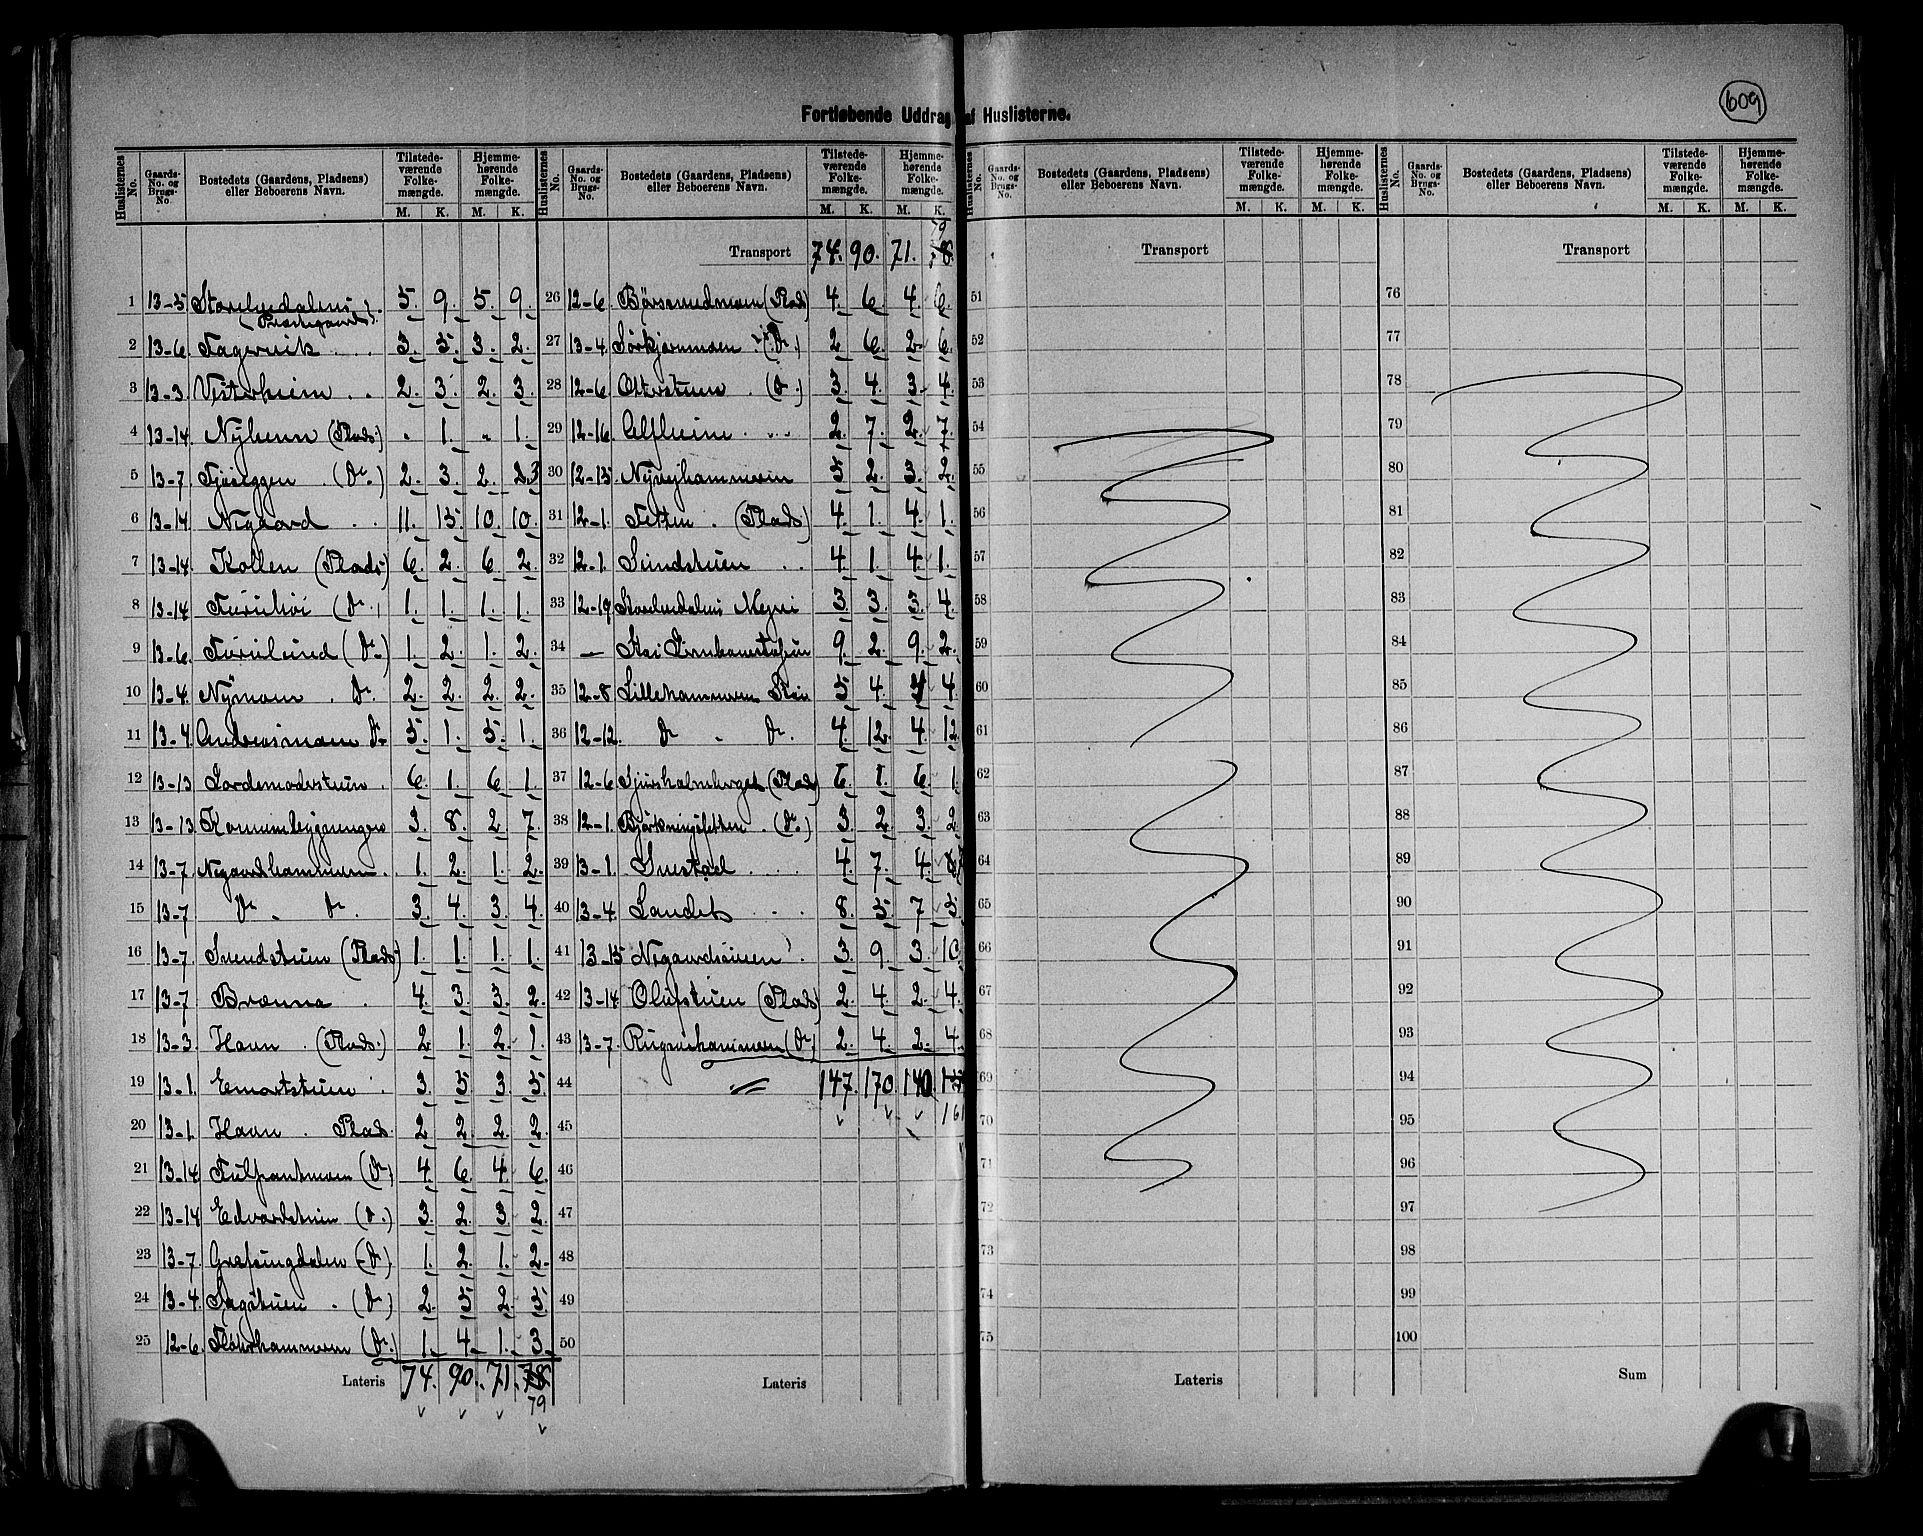 609
Fortløbende Uddrag af Huslisterne.
Huslisternes No. Gaards-No. og Brugs-No. Bostedets (Gaardens, Pladsens) eller Beboerens Navn. Tilstedeværende Folkemængde. M. K. Hjemmehørende Folkemængde. M. K.
1 13-5 Storelvedalens (Præstegaard) 5. 9. 5. 9.
2 13-6. Fagervik 3. 5. 3. 2.
3 13-3. Vesterheim 2. 3. 2. 3.
4 13-14. Nyheim (Plads) " 1. " 1.
5 13-7 (Do.) 2. 3. 2. 3
6 13-14. Negaard 11. 15. 10. 10.
7 13-14. Kollen (Plads) 6. 2. 6. 2.
8 13-14 Furuhøi (Do.) 1. 1. 1. 1.
9 13-6. Furulund (Do.) 1. 2. 1. 2.
10 13-4. Nymoen Do. 2. 2. 2. 2.
11 13-4 Andreasmoen Do. 5. 1. 5. 1.
12 13-13 6. 1. 6. 1.
13 13-13. 3. 8. 2. 7.
14 13-7 Negaardhammeren 1. 2. 1. 2.
15 13-7 Do. " Do. 3. 4. 3. 4.
16 13-7. Svendstuen (Plads) 1. 1. 1. 1.
17 13-7 Brænna 4. 3. 3. 2.
18 13-3. Haun (Plads) 2 1. 2. 1.
19 13-1. 3. 5. 3. 5.
20 13-1. Haun Plads. 2 2. 2. 2.
21 13-14 (Do.) 4. 6. 4. 6.
22 13-14 Edvardstuen (Do.) 3. 2. 3. 2.
23 13-7. Græsungdalen (Do.) 1. 2. 1. 2.
24 13-4. Sagstuen (Do.) 2. 5. 2. 5.
25 12-6. (Do.) 1. 4. 1. 3.
Lateris 74. 90. 71. 78
79
Huslisternes No. Gaards-No. og Brugs-No. Bostedets (Gaardens, Pladsens) eller Beboerens Navn. Tilstedeværende Folkemængde. M. K. Hjemmehørende Folkemængde. M. K.
79
Transport 74. 90. 71.
26 12-6. (Plads) 4. 6. 4. 6.
27 13-4. (Do.) 2. 6. 2. 6.
28 12-6. (Do.) 3. 4. 3. 4.
29 12-16. Alfheim 2. 7. 2. 7.
30 12-15. 5. 2. 3. 2.
31 12-1. Tetten (Plads) 4. 1. 4. 1.
32 12-1. Sundstuen 4. 1. 4. 1.
33 12-19. Storelvedalens Meieri 3. 3. 3. 4.
34 — Stai Jernbanestation 9. 2. 9. 2.
35 12-8 Lillehammeren Stai 5 4. 4.
36 12-12. Do " Do. 4. 12. 4 12.
37 12-6 (Plads) 6. 1. 6. 1
38 12-1. (Do.) 3. 2. 3. 2
39 13-1. 4. 7. 4.
40 13-4. Landet 8. 5. 7 5
41 13-15 3. 9. 3. 10.
42 13-14. Olufstuen (Plads) 2. 4. 2. 4.
43 13-7. (Do.) 2. 4. 2. 4.
44 147. 170. 140.
161
45
46
47
48
49
50
Lateris
Huslisternes No. Gaards-No. og Brugs-No. Bostedets (Gaardens, Pladsens) eller Beboerens Navn. Tilstedeværende Folkemængde. M. K. Hjemmehørende Folkemængde. M. K.
Transport
51
52
53
54
55
56
57
58
59
60
61
62
63
64
65
66
67
68
69
70
71
72
73
74
75
Lateris
Huslisternes No. Gaards-No. og Brugs-No. Bostedets (Gaardens, Pladsens) eller Beboerens Navn. Tilstedeværende Folkemængde. M. K. Hjemmehørende Folkemængde. M. K.
Transport
76
77
78
79
80
81
82
83
84
85
86
87
88
89
90
91
92
93
94
95
96
97
98
99
100
Sum